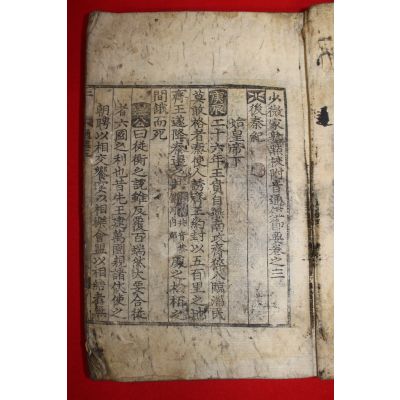 少微家塾點校附音通鑑節要卷之三
後秦紀
始皇帝下
庚辰二十六年王賁自燕南攻齊猝入臨淄民
莫敢格者秦使人誘齊王約封以五百里之地
齊王遂降秦遷之共處之松柏之
間餓而死
公曰從衡之說雖反覆百端然大要合從
者六國之利也昔先王建萬國親諸侯使之
朝聘以相交饗宴以相樂會盟以相結者無